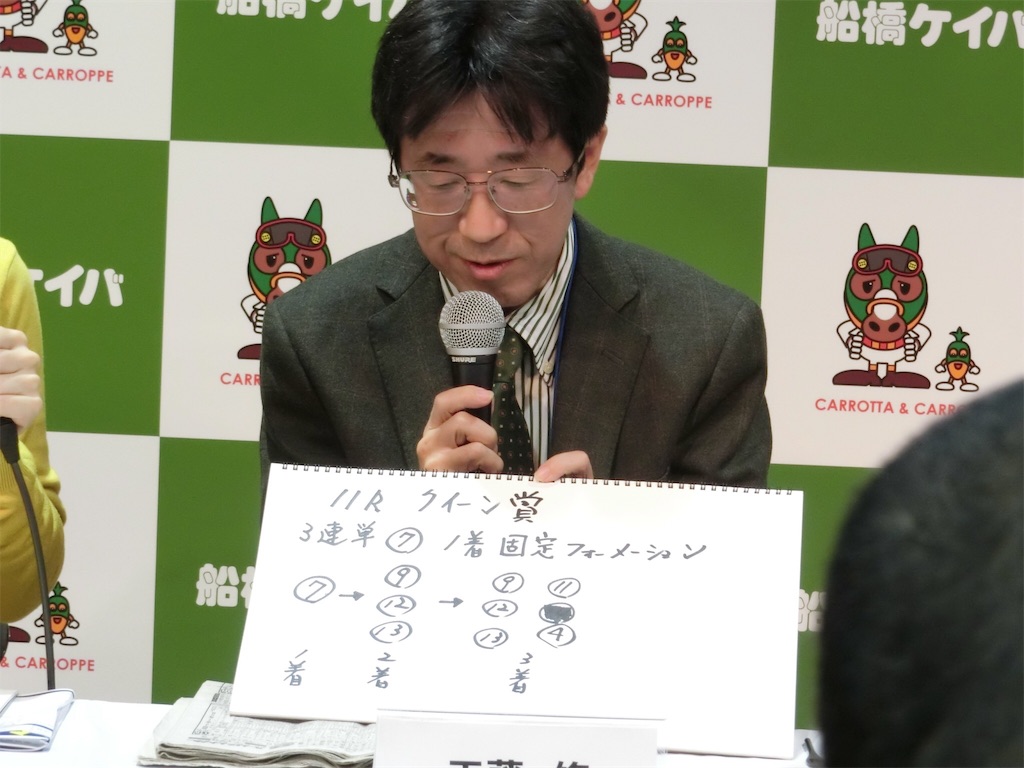 船橋ケイバ
船橋ケイバ
TA & CARROPPE
& CARROPPE
ケイバ
CARR
CARROTTA & CARRO
船
& CARROPPE
11R クイーン賞
3連単 ⑦ 1着固定フォーメーション
⑦ → ⑨ → ⑨ ⑪
⑫ ⑫
⑬ ⑬ ④
1着 2着 3着